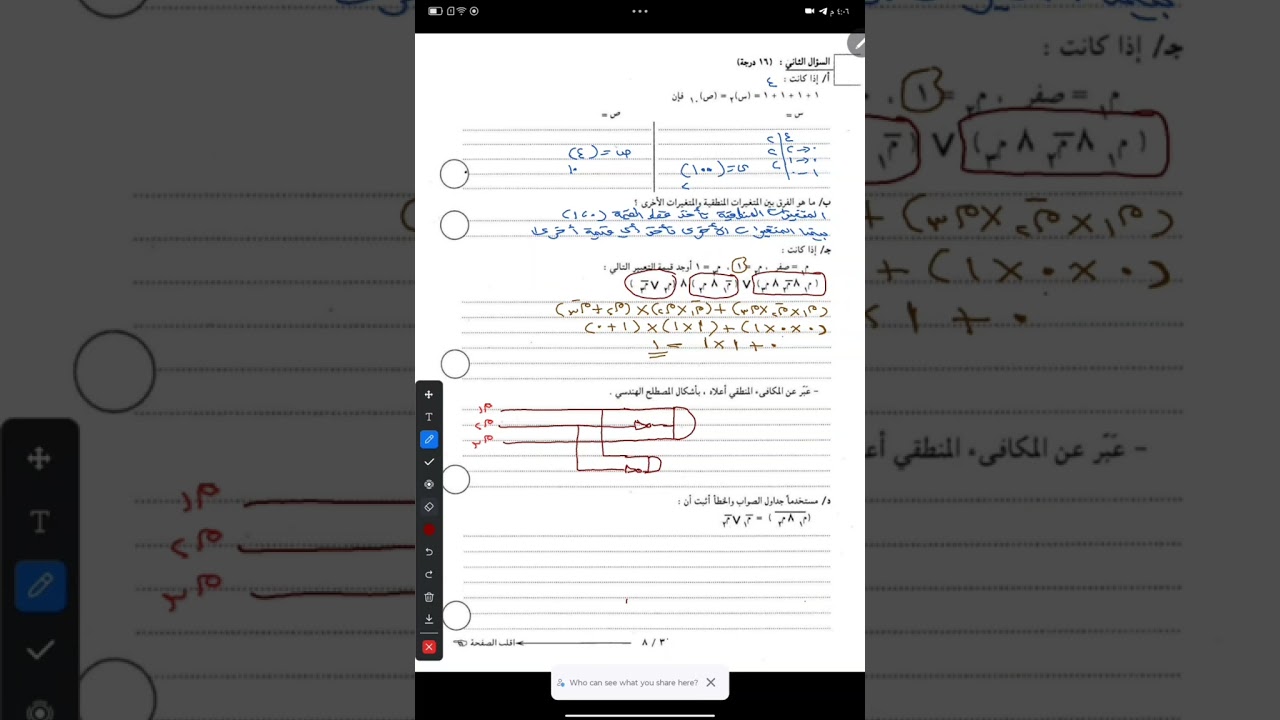 ٤:٠٦ م
السؤال الثاني : (١٦ درجة)
أ/ إذا كانت :
٤
١ + ١ + ١ + ١ = (س)٢ = (ص)١٠ فإن
س =
ص =
ص = (٤)١٠
س = (١٠٠)٢
ب/ ما هو الفرق بين المتغيرات المنطقية والمتغيرات الأخرى ؟
المتغيرات المنطقية تأخذ فقط القيمة (١،٠)
بينما المتغيرات الأخرى تأخذ أي قيمة أخرى
جـ/ إذا كانت :
م١ = صفر ، م٢ = ١ ، م٣ = ١ أوجد قيمة التعبير التالي :
(٠×٠×١) + (١×١) × (١+٠)
٠ + ١×١ = ١
- عَبّر عن المكافىء المنطقي أعلاه ، بأشكال المصطلح الهندسي .
م١
م٢
م٣
د/ مستخدماً جداول الصواب والخطأ أثبت أن :
٣ / ٨
اقلب الصفحة
T
Who can see what you share here?
جـ/ إذا كانت :
- عَبّر عن المكافىء المنطقي أعلاه
م١
م٢
م٣
T